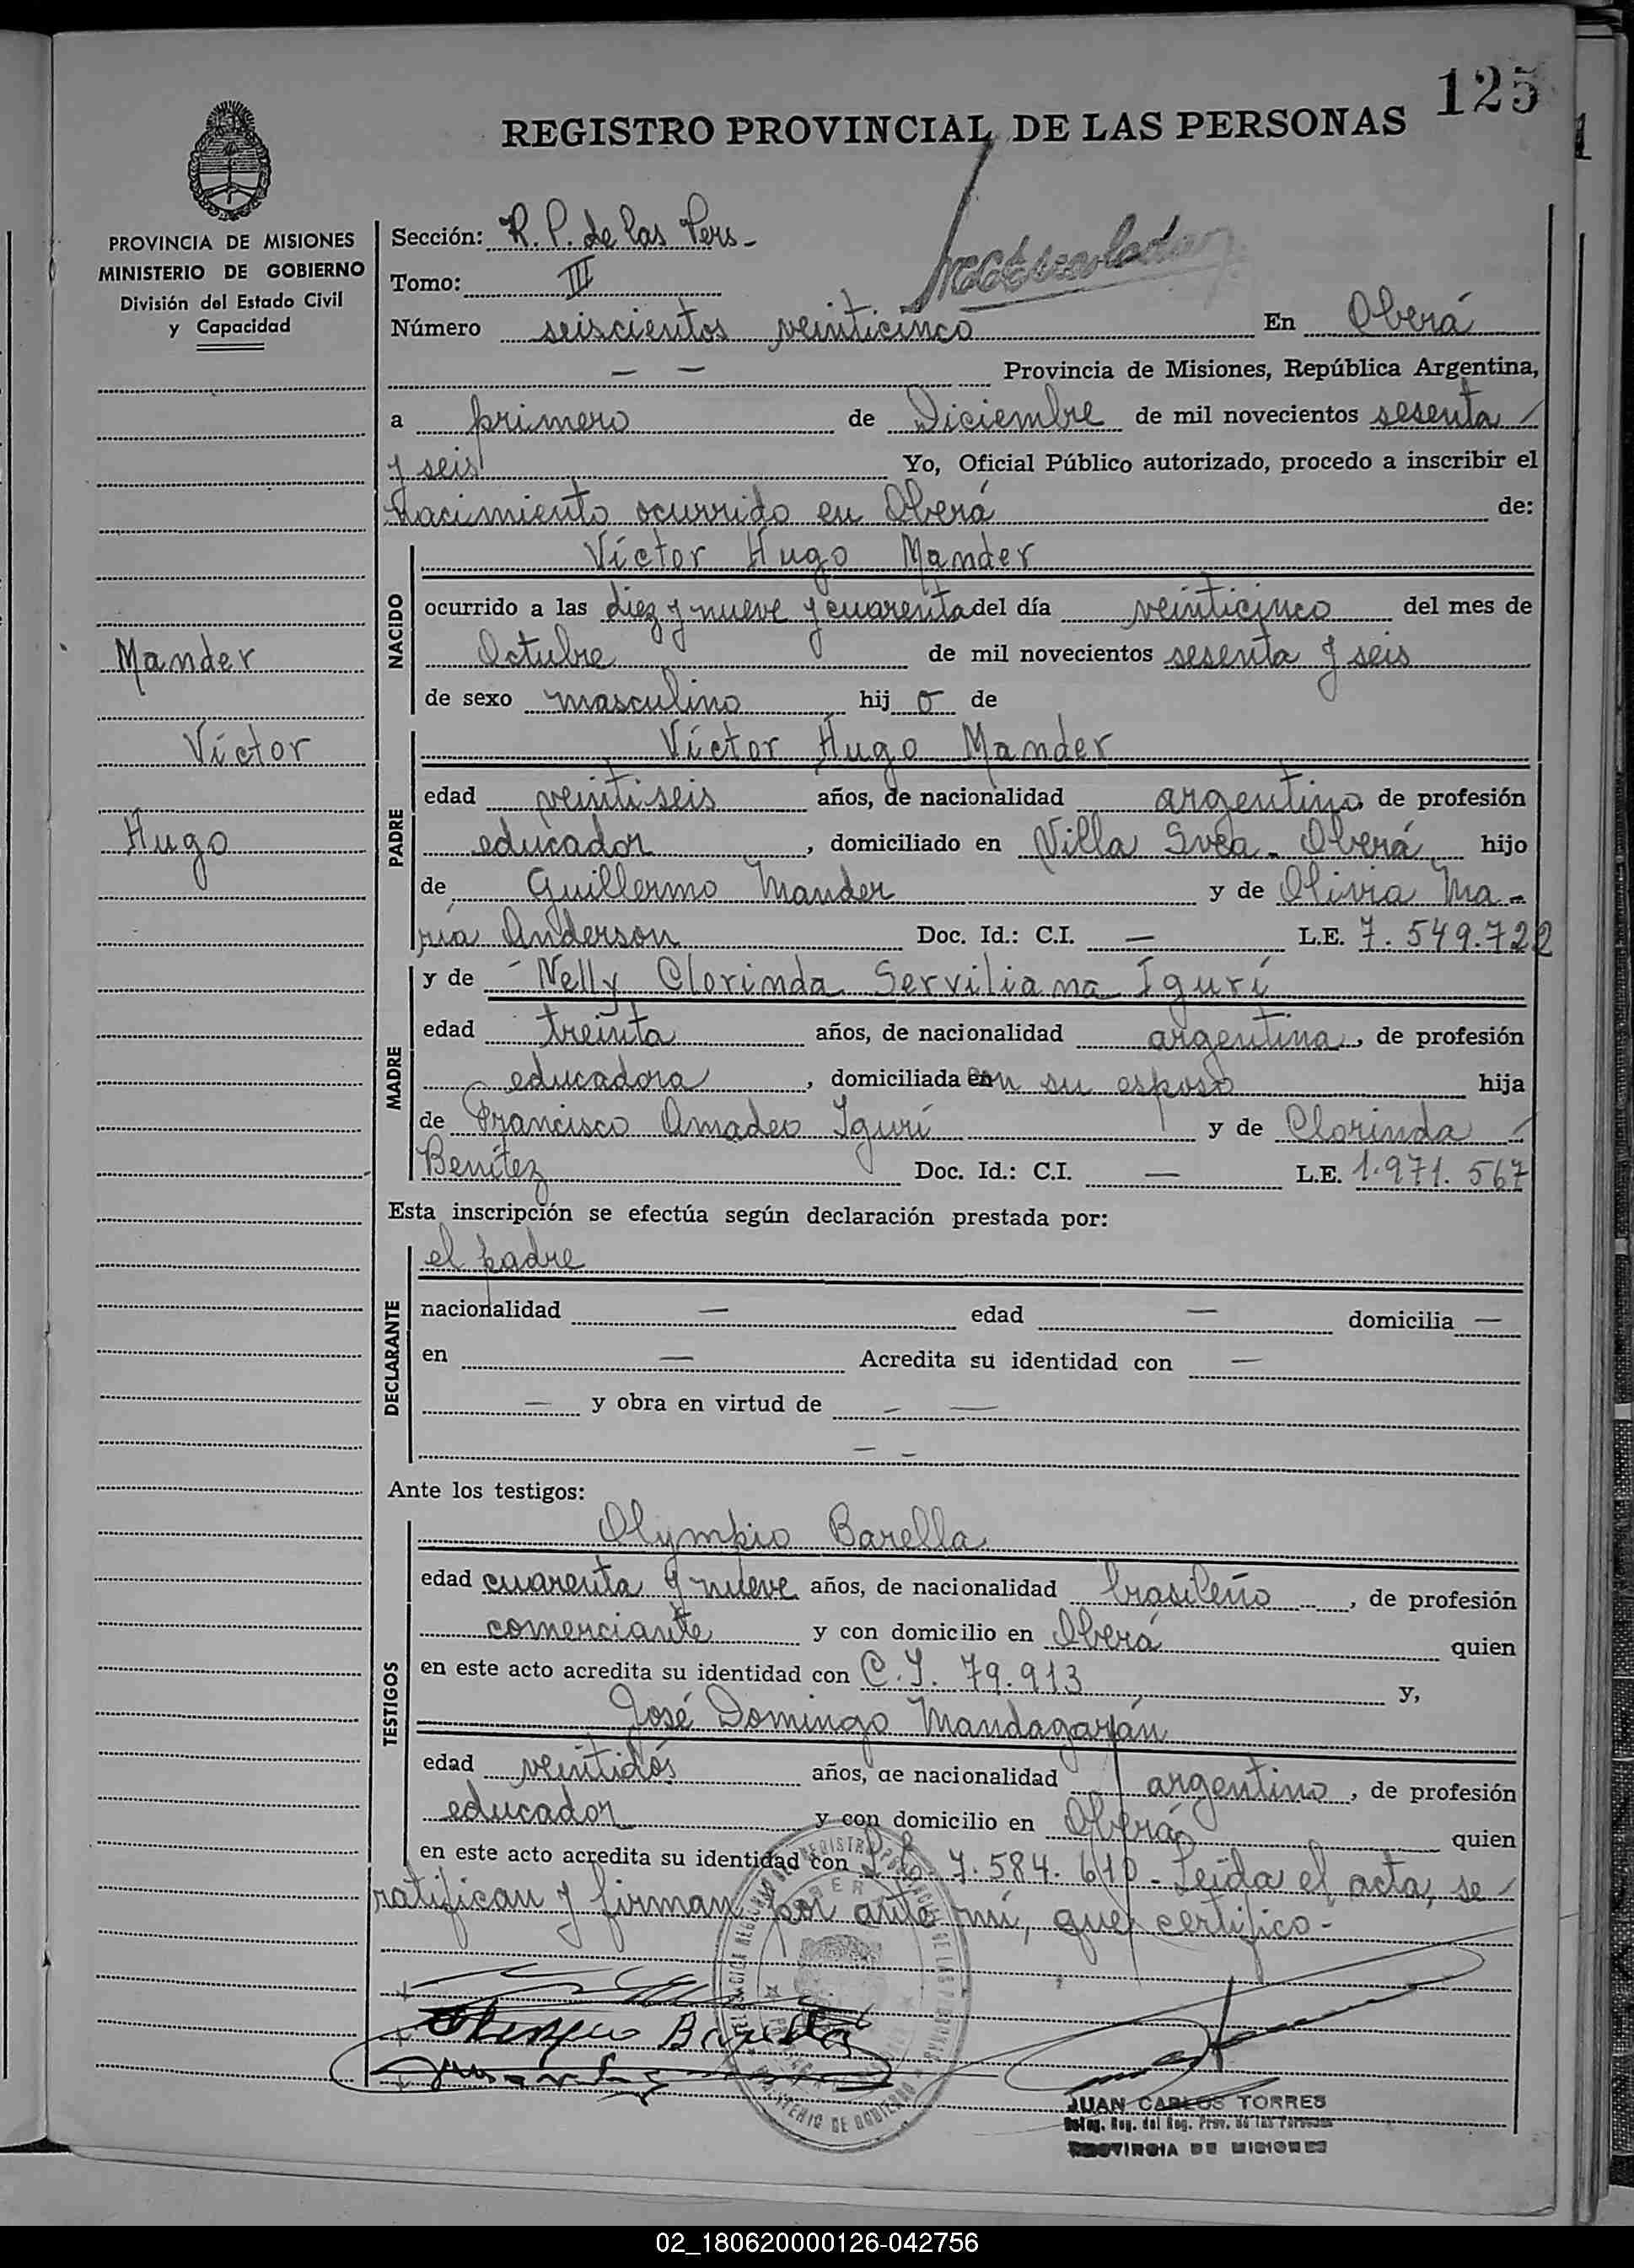 125
REGISTRO PROVINCIAL DE LAS PERSONAS
PROVINCIA DE MISIONES
MINISTERIO DE GOBIERNO
División del Estado Civil
y Capacidad
Mander
Víctor
Hugo
Sección: R. P. de las Pers-
Tomo: III
Número seiscientos veinticinco En Oberá
— — Provincia de Misiones, República Argentina,
a primero de Diciembre de mil novecientos sesenta
y seis Yo, Oficial Público autorizado, procedo a inscribir el
nacimiento ocurrido en Oberá de:
NACIDO
Víctor Hugo Mander
ocurrido a las diez y nueve y cuarenta del día veinticinco del mes de
Octubre de mil novecientos sesenta y seis
de sexo masculino hij o de
PADRE
Víctor Hugo Mander
edad veintiseis años, de nacionalidad argentino de profesión
educador, domiciliado en Villa Svea - Oberá hijo
de Guillermo Mander y de Olivia Ma-
ría Anderson Doc. Id.: C.I. — L.E. 7.549.722
MADRE
y de - Nelly Clorinda Serviliana Igurí
edad treinta años, de nacionalidad argentina, de profesión
educadora, domiciliada en su esposo hija
de Francisco Amadeo Igurí y de Clorinda
Benítez Doc. Id.: C.I. — L.E. 1.971.567
Esta inscripción se efectúa según declaración prestada por:
DECLARANTE
el padre
nacionalidad — edad — domicilia —
en — Acredita su identidad con —
— y obra en virtud de - —
— -
Ante los testigos:
TESTIGOS
Olympio Barella
edad cuarenta y nueve años, de nacionalidad brasileño, de profesión
comerciante y con domicilio en Oberá quien
en este acto acredita su identidad con C.I. 79.913 y,
José Domingo Mandagarán
edad veintidós años, de nacionalidad argentino, de profesión
educador y con domicilio en Oberá quien
en este acto acredita su identidad con 7.584.610 - Leída el acta, se
ratifican y firman por ante mí, que certifico -
Barella
JUAN CARLOS TORRES
Deleg. Reg. del Reg. Prov. de las Personas
PROVINCIA DE MISIONES
MINISTERIO DE GOBIERNO
02_180620000126-042756